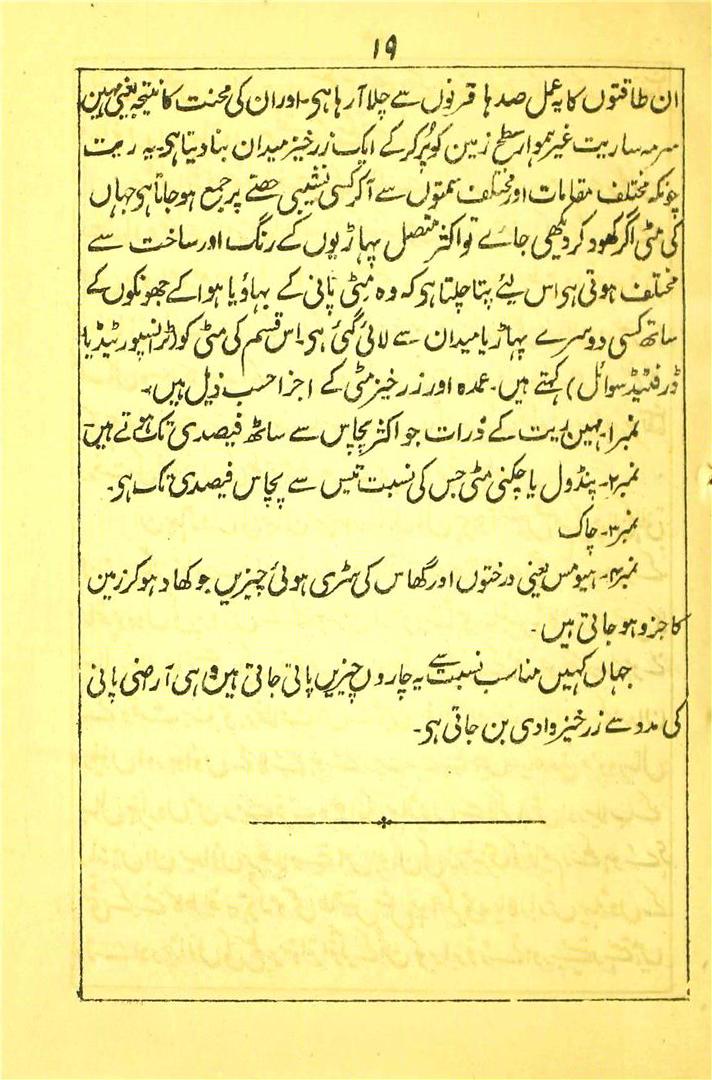 ۱۹
ان طاقتوں کا یہ عمل صدہا قرنوں سے چلا آرہا ہی۔ اور ان کی محنت کا نتیجہ یعنی مہین
سرمہ سا ریت غیر ہموار سطح زمین کو پُر کرکے ایک زرخیز میدان بنا دیتا ہی۔ یہ ریت
چونکہ مختلف مقامات اور مختلف سمتوں سے آکر کسی نشیبی حصّے پر جمع ہو جاتا ہی جہاں
کی مٹی اگر کھود کر دیکھی جائے تو اکثر متصل پہاڑیوں کے رنگ اور ساخت سے
مختلف ہوتی ہی اس لئے پتا چلتا ہی کہ وہ مٹی پانی کے بہاؤ یا ہوا کے جھونکوں کے
ساتھ کسی دوسرے پہاڑ یا میدان سے لائی گئی ہی۔ اس قسم کی مٹی کو (ٹرانسپورٹیڈ یا
ڈرفٹیڈ سوائل) کہتے ہیں۔ عمدہ اور زرخیز مٹی کے اجزا حسب ذیل ہیں۔
نمبر۱۔ مہین ریت کے ذرات جو اکثر پچاس سے ساٹھ فیصدی تک ہوتے ہیں
نمبر۲۔ پنڈول یا چکنی مٹی جس کی نسبت تیس سے پچاس فیصدی تک ہی۔
نمبر۳۔ چاک
نمبر۴۔ ہیومس یعنی درختوں اور گھاس کی سڑی ہوئی چیزیں جو کھاد ہو کر زمین
کا جزو ہو جاتی ہیں۔
جہاں کہیں مناسب نسبت سے یہ چاروں چیزیں پائی جاتی ہیں وہی آرضی پانی
کی مدد سے زرخیز وادی بن جاتی ہی۔